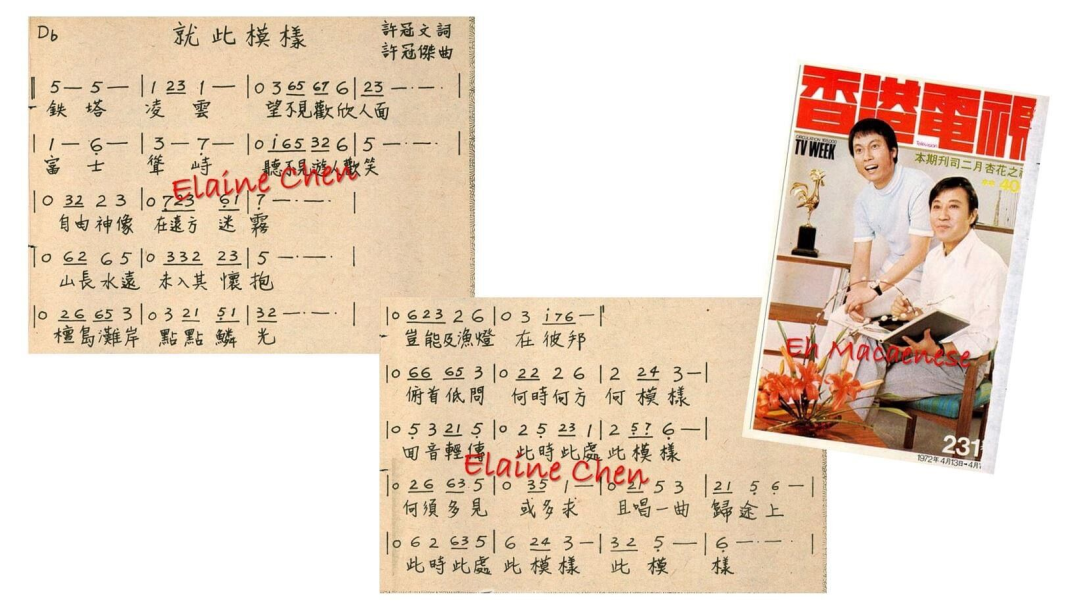 Db
就此模樣
許冠文詞
許冠傑曲
‖ 5 — 5 — | 1 23 1 — | 0 3 65 67 6 | 23 — · — · |
鉄塔 凌雲 望不見歡欣人面
1 — 6 — | 3 — 7 — | 0 i 65 32 6 | 5 — · — · |
富士 聳峙 聽不見遊人歡笑
Elaine Chen
| 0 32 2 3 | 0 723 61 | 7 — · — · |
自由神像 在遠方 迷霧
| 0 62 6 5 | 0 332 23 | 5 — · — · |
山長水遠 未入其懷抱
| 0 26 65 3 | 0 3 21 51 | 32 — · — · |
檀島灘岸 點點鱗光
| 0 623 2 6 | 0 3 i76 — ‖
豈能及漁燈 在彼邦
| 0 66 65 3 | 0 22 2 6 | 2 24 3 — |
俯首低問 何時何方 何模樣
| 0 5 3 21 5 | 0 2 5 23 1 | 2 57 6 — |
回音輕傳 此時此處此模樣
Elaine Chen
| 0 26 63 5 | 0 35 1 — | 0 21 5 3 | 21 5 6 — |
何須多見 或多求 且唱一曲 歸途上
| 0 6 2 63 5 | 6 24 3 — | 32 5 — | 6 — · — · |
此時此處 此模樣 此模樣
香港電視
Television
TV WEEK
本期刊司二月杏花之
40
Eh Macaenese
231
1972年4月13日-4月